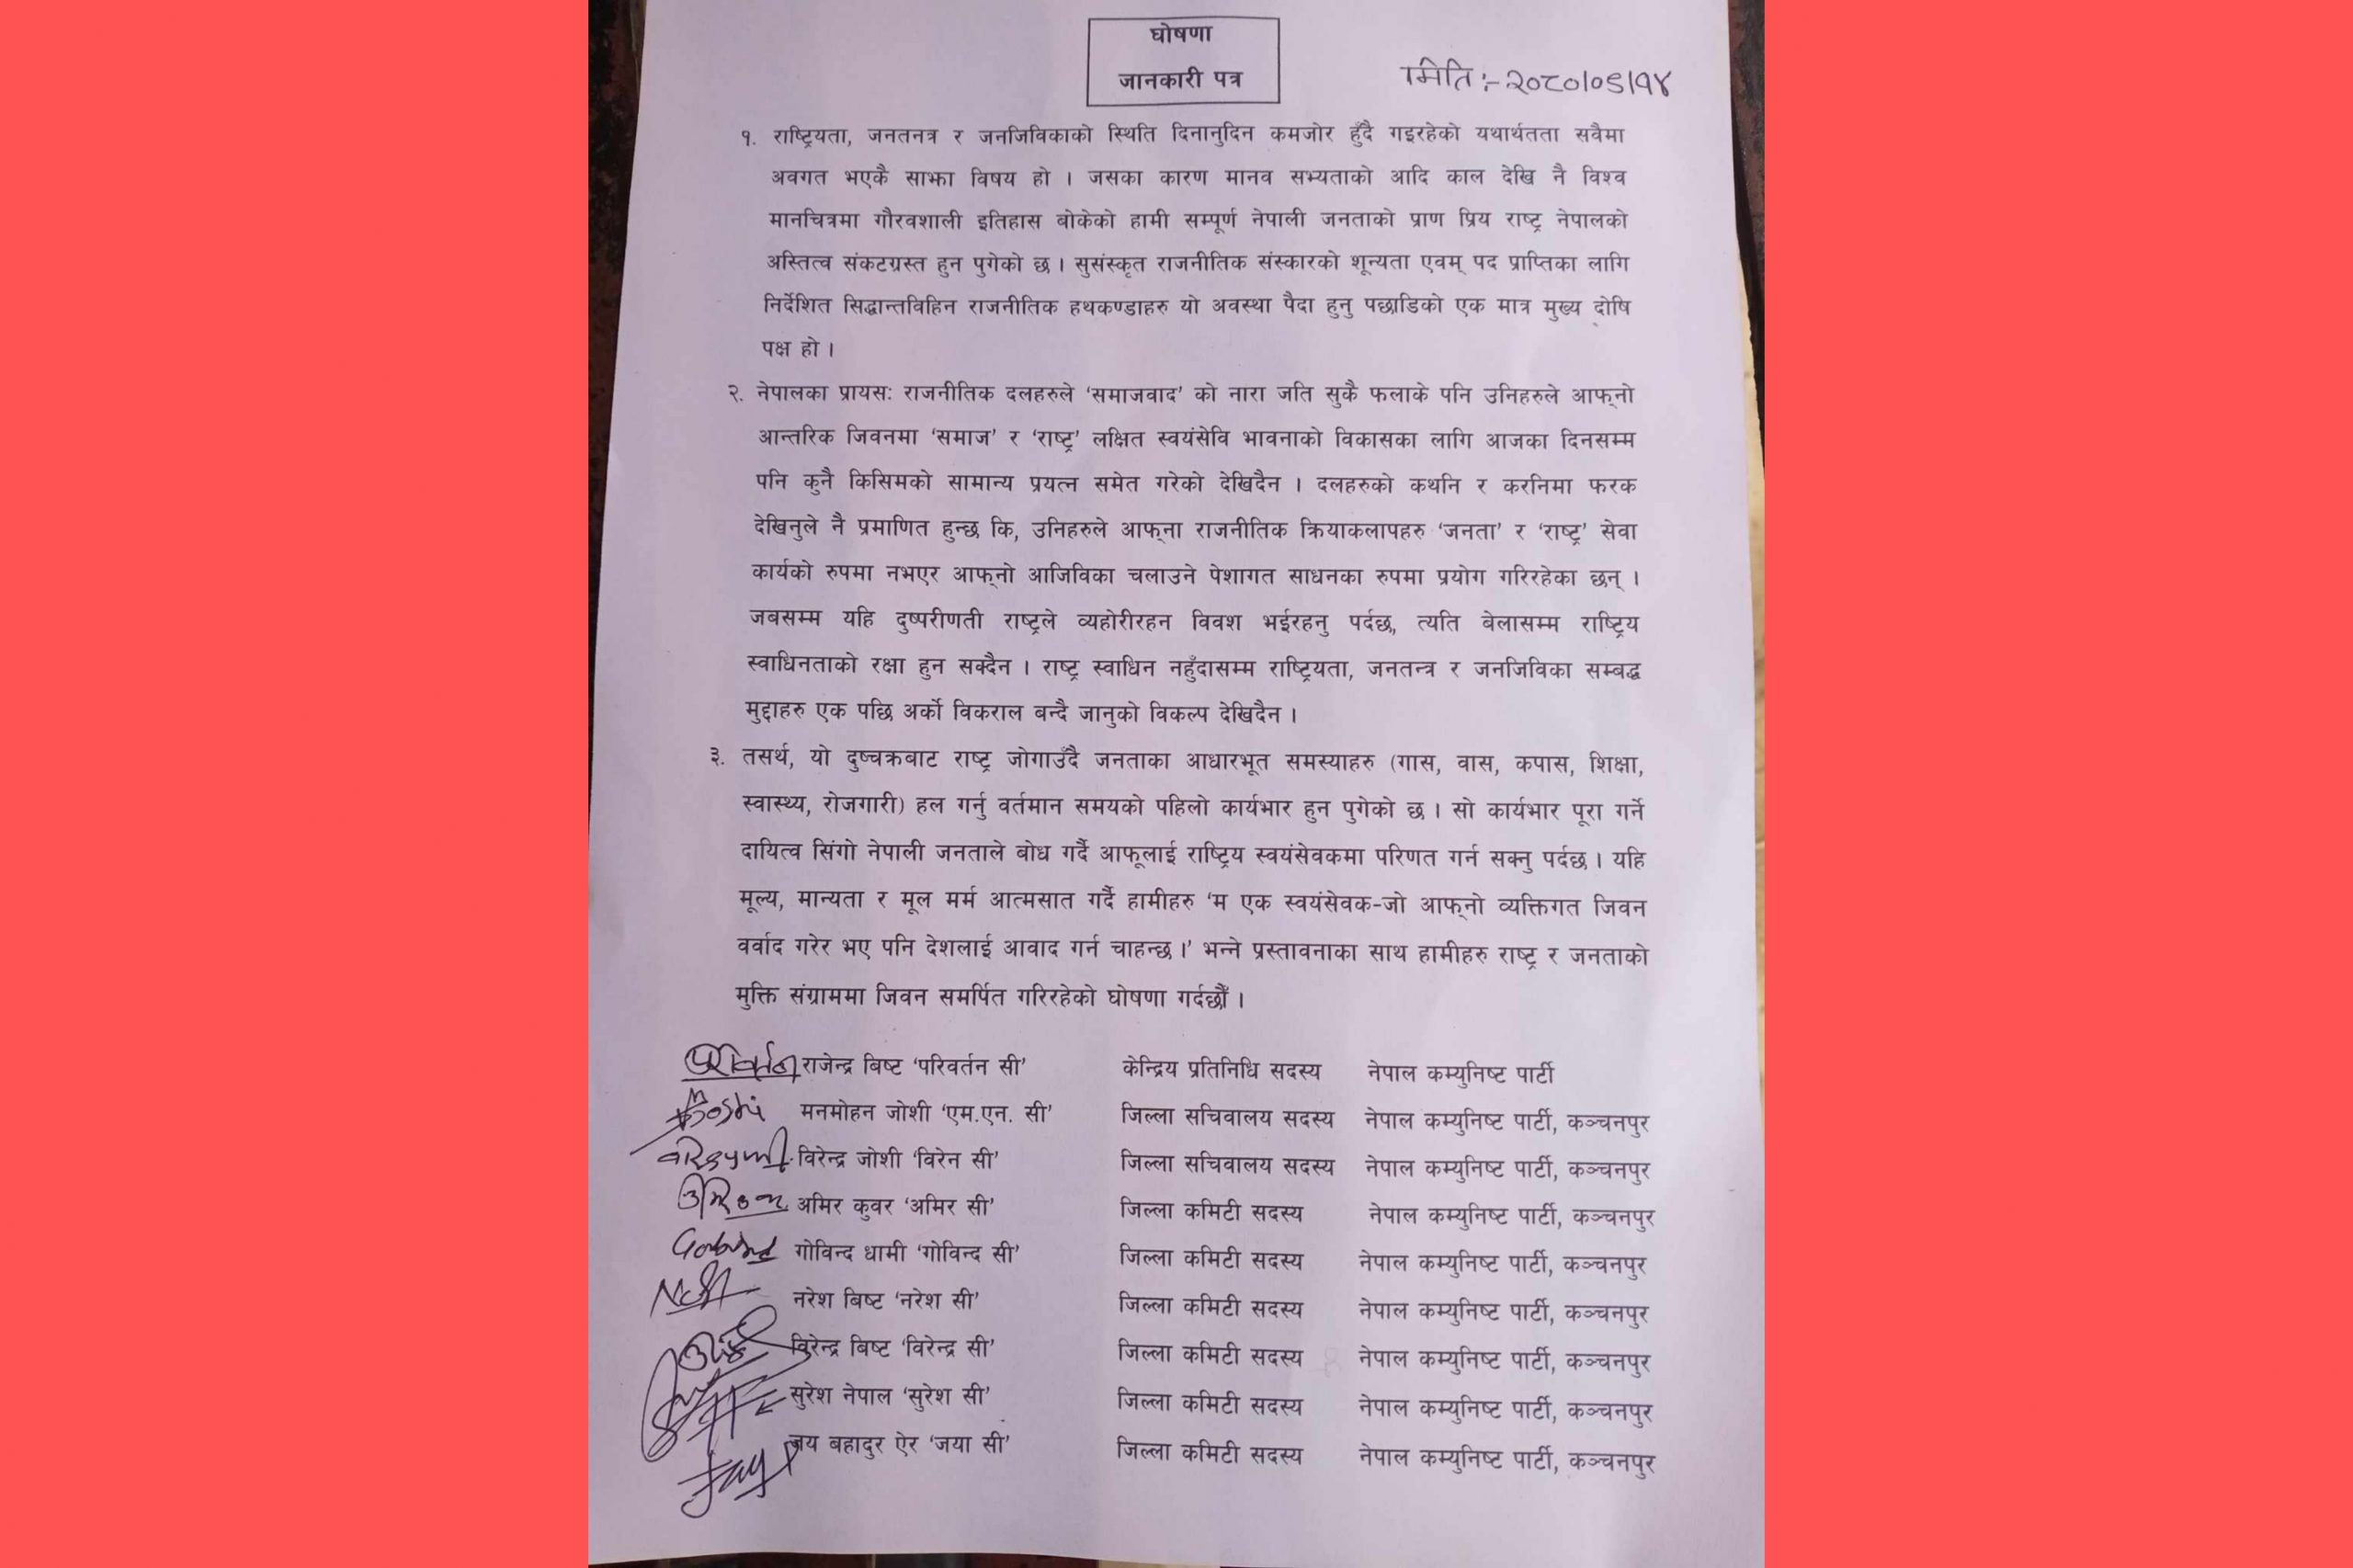 घोषणा
जानकारी पत्र
मिति:-२०८०/०६/१४
१. राष्ट्रियता, जनतनत्र र जनजिविकाको स्थिति दिनानुदिन कमजोर हुँदै गइरहेको यथार्थतता सवैमा
अवगत भएकै साझा विषय हो । जसका कारण मानव सभ्यताको आदि काल देखि नै विश्व
मानचित्रमा गौरवशाली इतिहास बोकेको हामी सम्पूर्ण नेपाली जनताको प्राण प्रिय राष्ट्र नेपालको
अस्तित्व संकटग्रस्त हुन पुगेको छ । सुसंस्कृत राजनीतिक संस्कारको शून्यता एवम् पद प्राप्तिका लागि
निर्देशित सिद्धान्तविहिन राजनीतिक हथकण्डाहरु यो अवस्था पैदा हुनु पछाडिको एक मात्र मुख्य दोषि
पक्ष हो ।
२. नेपालका प्रायसः राजनीतिक दलहरुले ‘समाजवाद’ को नारा जति सुकै फलाके पनि उनिहरुले आफ्‌नो
आन्तरिक जिवनमा ‘समाज’ र ‘राष्ट्र’ लक्षित स्वयंसेवि भावनाको विकासका लागि आजका दिनसम्म
पनि कुनै किसिमको सामान्य प्रयत्न समेत गरेको देखिदैन । दलहरुको कथनि र करनिमा फरक
देखिनुले नै प्रमाणित हुन्छ कि, उनिहरुले आफ्‌ना राजनीतिक क्रियाकलापहरु ‘जनता’ र ‘राष्ट्र’ सेवा
कार्यको रुपमा नभएर आफ्‌नो आजिविका चलाउने पेशागत साधनका रुपमा प्रयोग गरिरहेका छन् ।
जबसम्म यहि दुष्परीणती राष्ट्रले व्यहोरीरहन विवश भईरहनु पर्दछ, त्यति बेलासम्म राष्ट्रिय
स्वाधिनताको रक्षा हुन सक्दैन । राष्ट्र स्वाधिन नहुँदासम्म राष्ट्रियता, जनतन्त्र र जनजिविका सम्बद्ध
मुद्दाहरु एक पछि अर्को विकराल बन्दै जानुको विकल्प देखिदैन ।
३. तसर्थ, यो दुष्चक्रबाट राष्ट्र जोगाउँदै जनताका आधारभूत समस्याहरु (गास, वास, कपास, शिक्षा,
स्वास्थ्य, रोजगारी) हल गर्नु वर्तमान समयको पहिलो कार्यभार हुन पुगेको छ । सो कार्यभार पूरा गर्ने
दायित्व सिंगो नेपाली जनताले बोध गर्दै आफूलाई राष्ट्रिय स्वयंसेवकमा परिणत गर्न सक्नु पर्दछ । यहि
मूल्य, मान्यता र मूल मर्म आत्मसात गर्दै हामीहरु ‘म एक स्वयंसेवक-जो आफ्‌नो व्यक्तिगत जिवन
वर्वाद गरेर भए पनि देशलाई आवाद गर्न चाहन्छ ।’ भन्ने प्रस्तावनाका साथ हामीहरु राष्ट्र र जनताको
मुक्ति संग्राममा जिवन समर्पित गरिरहेको घोषणा गर्दछौँ ।
परिवर्तन राजेन्द्र बिष्ट ‘परिवर्तन सी’ केन्द्रिय प्रतिनिधि सदस्य नेपाल कम्युनिष्ट पार्टी
मनमोहन जोशी ‘एम.एन. सी’ जिल्ला सचिवालय सदस्य नेपाल कम्युनिष्ट पार्टी, कञ्चनपुर
विरेन्द्र जोशी ‘विरेन सी’ जिल्ला सचिवालय सदस्य नेपाल कम्युनिष्ट पार्टी, कञ्चनपुर
अमिर कुवर ‘अमिर सी’ जिल्ला कमिटी सदस्य नेपाल कम्युनिष्ट पार्टी, कञ्चनपुर
गोविन्द धामी ‘गोविन्द सी’ जिल्ला कमिटी सदस्य नेपाल कम्युनिष्ट पार्टी, कञ्चनपुर
नरेश बिष्ट ‘नरेश सी’ जिल्ला कमिटी सदस्य नेपाल कम्युनिष्ट पार्टी, कञ्चनपुर
विरेन्द्र बिष्ट ‘विरेन्द्र सी’ जिल्ला कमिटी सदस्य नेपाल कम्युनिष्ट पार्टी, कञ्चनपुर
सुरेश नेपाल ‘सुरेश सी’ जिल्ला कमिटी सदस्य नेपाल कम्युनिष्ट पार्टी, कञ्चनपुर
जय बहादुर ऐर ‘जया सी’ जिल्ला कमिटी सदस्य नेपाल कम्युनिष्ट पार्टी, कञ्चनपुर
Jay